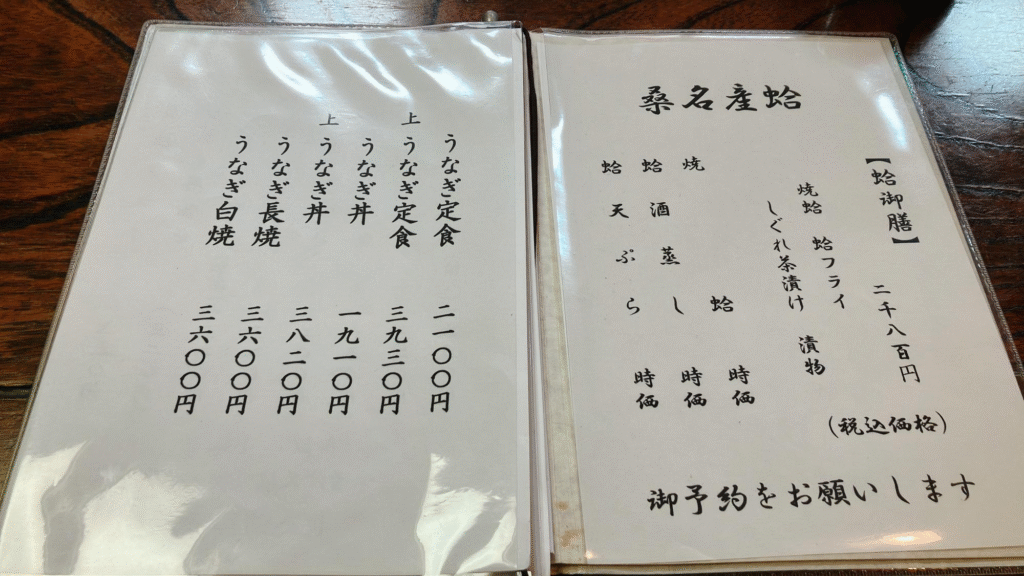 桑名産蛤
【蛤御膳】 二千八百円
焼蛤 蛤フライ 漬物
しぐれ茶漬け
(税込価格)
焼蛤 時価
蛤酒蒸し 時価
蛤天ぷら 時価
御予約をお願いします
うなぎ定食 二一〇〇円
上うなぎ定食 三九三〇円
うなぎ丼 一九一〇円
上うなぎ丼 三八二〇円
うなぎ長焼 三六〇〇円
うなぎ白焼 三六〇〇円